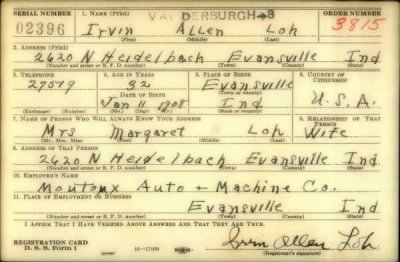 SERIAL NUMBER 1. NAME (Print) VANDERBURGH-3 ORDER NUMBER
02396 Irvin Allen Loh 3815
(First) (Middle) (Last)
2. ADDRESS (Print)
2620 N Heidelbach Evansville Ind
(Number and street or R. F. D. number) (Town) (County) (State)
3. TELEPHONE 4. AGE IN YEARS 5. PLACE OF BIRTH 6. COUNTRY OF CITIZENSHIP
27579 32 Evansville
DATE OF BIRTH (Town or county)
Jan 11 1908 Ind U.S.A.
(Exchange) (Number) (Mo.) (Day) (Yr.) (State or country)
7. NAME OF PERSON WHO WILL ALWAYS KNOW YOUR ADDRESS 8. RELATIONSHIP OF THAT PERSON
Mrs Margaret Loh Wife
(Mr., Mrs., Miss) (First) (Middle) (Last)
9. ADDRESS OF THAT PERSON
2620 N Heidelbach Evansville Ind
(Number and street or R. F. D. number) (Town) (County) (State)
10. EMPLOYER'S NAME
Moutoux Auto + Machine Co.
11. PLACE OF EMPLOYMENT OR BUSINESS
Evansville Ind
(Number and street or R. F. D. number) (Town) (County) (State)
I AFFIRM THAT I HAVE VERIFIED ABOVE ANSWERS AND THAT THEY ARE TRUE.
REGISTRATION CARD
D. S. S. Form 1 16—17105 Irvin Allen Loh
(Registrant's signature)